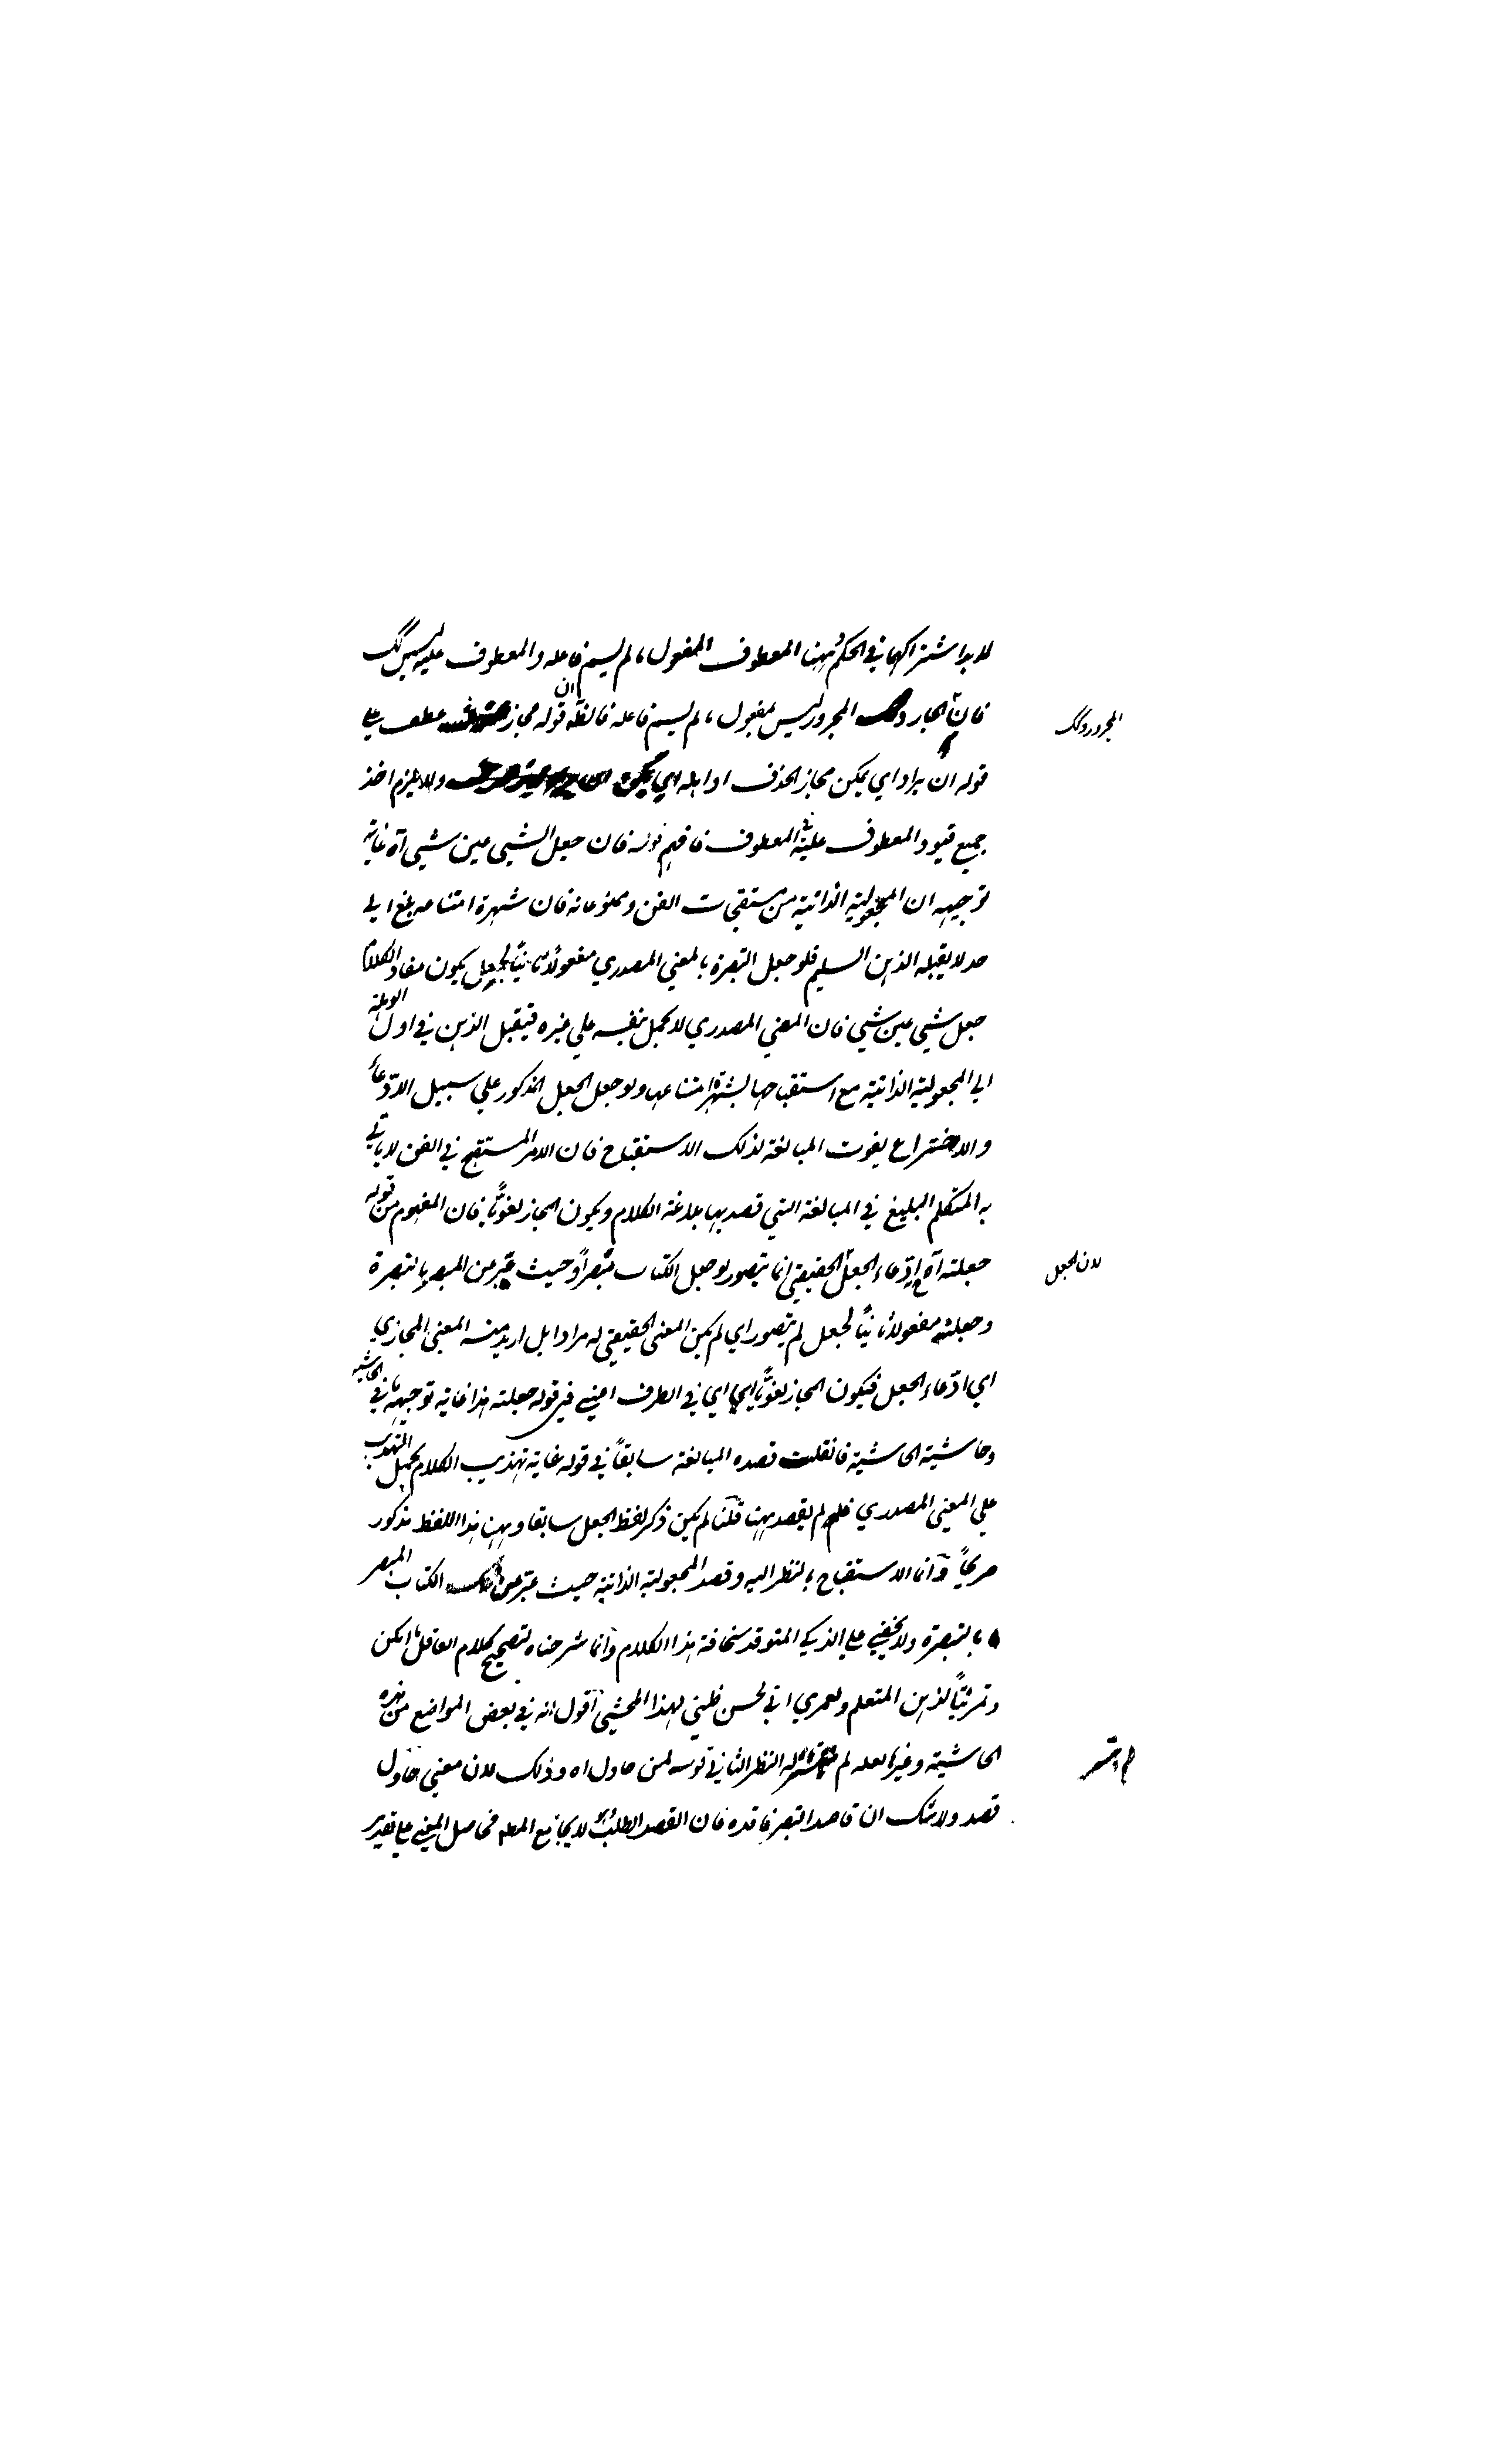 لابد اشتراكهما في الحكم وههنا المعطوف المفعول ما لم يسم فاعله والمعطوف عليه ليس كك
فان الجار المجرور ليس بمفعول ما لم يسم فاعله فالظ ان قوله مجاز عطف على
المجرور وكك
قوله ان يراد اي يمكن مجاز الحذف او ابله والا يلزم اخذ
جميع قيود المعطوف عليه في المعطوف فافهم قوله فان جعل الشيي عين شيي آه غاية
توجيهه ان المجعولية الذاتية من مستقبحات الفن وممنوعاته فان شهرة امتناعه بلغ الي
حد لا يقبله الذهن السليم فلو جعل التبصرة بالمعني المصدري مفعولا ثانيا لجعل يكون مفاد الكلام
جعل شيي عين شيي فان المعني المصدري لا يحمل بنفسه علي غيره فيتقبل الذهن في اول الوهلة
الي المجعولية الذاتية مع استقباحها بشهرة امتناعها ولو جعل الجعل المذكور علي سبيل الادّعاء
والاختراع يفوت المبالغة لذلك الاستقباح فان الامر المستقبح في الفن لا ياتي
به المتكلم البليغ في المبالغة التي قصد بها بلاغة الكلام ويكون المجاز لغويًّا فان المفهوم من قوله
جعلته آه ادّعاء الجعل الحقيقي انما يتصور لو جعل الكتاب مبصرًا وحيث عبّر عن المبصر بالتبصرة
لان الجعل
وجعلته مفعولا ثانيًا لجعل لم يتصور اي لم يكن المعني الحقيقي له مرادا بل اريد منه المعني المجازي
اي ادّعاء الجعل فيكون المجاز لغويًّا اي في الطرف اعني في قوله جعلته هذا غاية توجيه ما في الحاشية
وحاشية الحاشية فان قلت قصده المبالغة سابقًا في قوله غاية تهذيب الكلام بحمل التهذيب
علي المعني المصدري فلم لم يقصد ههنا قلنا لم يكن ذكر لفظ الجعل سابقا وههنا هذا اللفظ مذكور
صريحًا وانما الاستقباح بالنظر اليه وقصد المجعولية الذاتية حيث عبّر عن الكتاب المبصر
بالتبصرة ولا يخفي علي الذكي المتوقد سخافة هذا الكلام وانما شرحناه لتصحيح كلام العاقل ما امكن
وتمرينًا لذهن المتعلم ولعمري اني لحسن ظني بهذا المحشي اقول انه في بعض المواضع من هذه
الحاشية وغيرها لعله لم يتيسر له النظر الثاني قوله لمن حاول اه وذلك لان معني حاول
قصد ولا شك ان قاصد التبصر فاقده فان القصد الطلب لا يجامع المطه فحاصل المعني علي تقدير